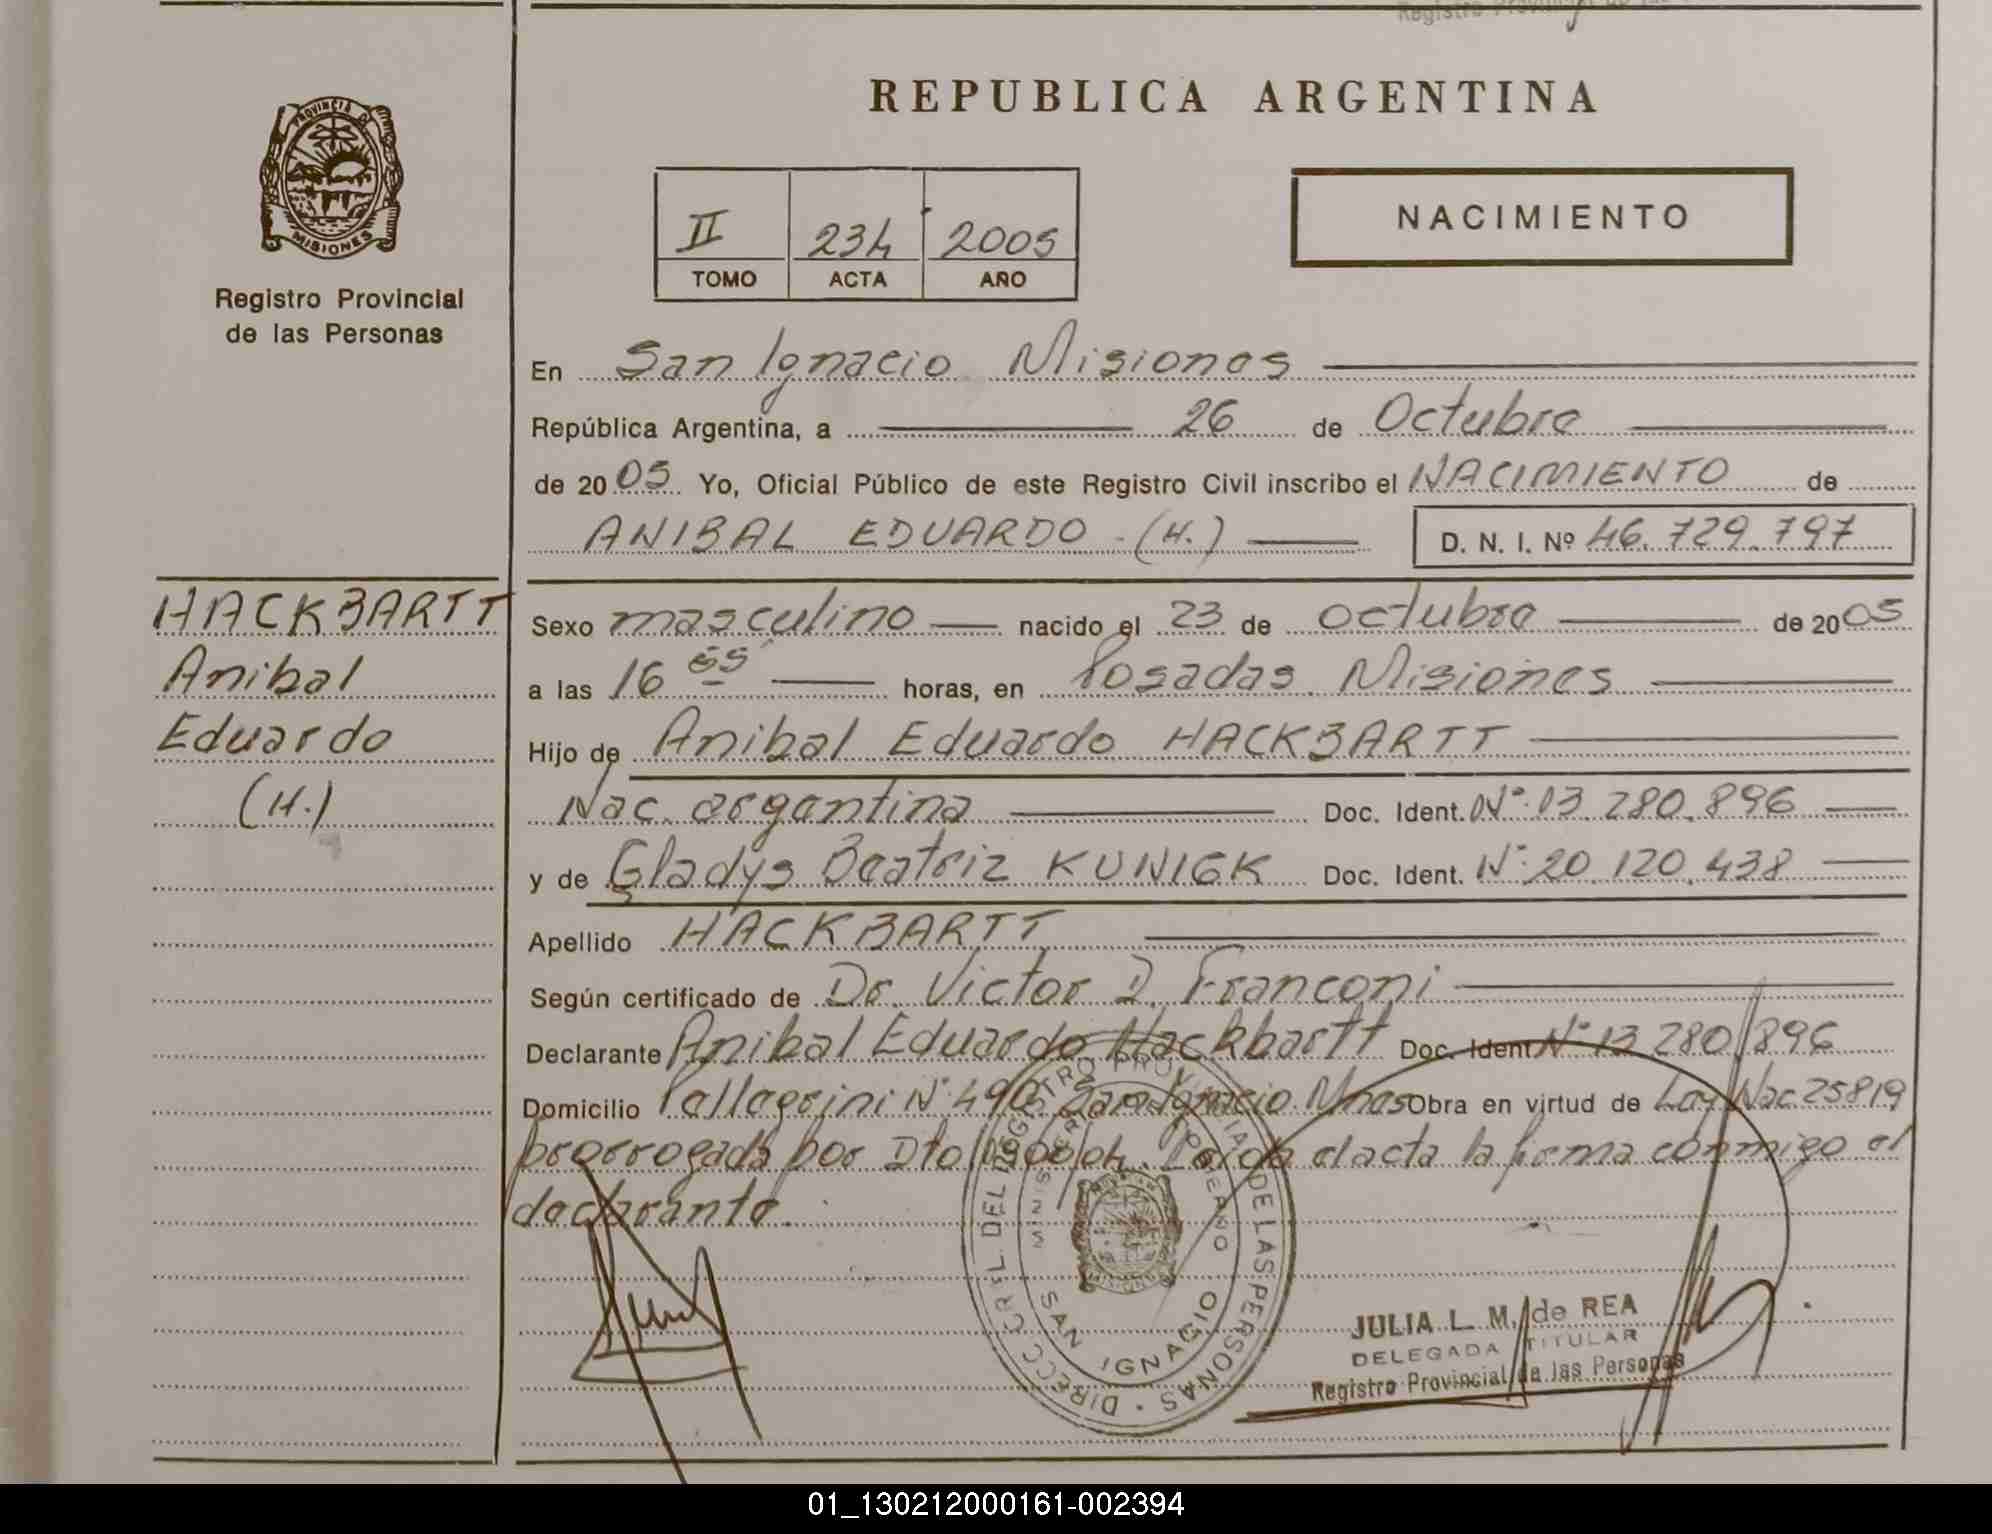 REPUBLICA ARGENTINA
PROVINCIA DE
MISIONES
Registro Provincial
de las Personas
II 234 2005
TOMO ACTA AÑO
NACIMIENTO
En San Ignacio Misiones
República Argentina, a 26 de Octubre
de 2005 Yo, Oficial Público de este Registro Civil inscribo el NACIMIENTO de
ANIBAL EDUARDO (H.) D. N. I. Nº 46.729.797
HACKBARTT
Anibal
Eduardo
(H.)
Sexo masculino nacido el 23 de octubre de 2005
a las 16 horas, en Posadas Misiones
Hijo de Anibal Eduardo HACKBARTT
Nac. argentina Doc. Ident. Nº 13.280.896
y de Gladys Beatriz KUNIGK Doc. Ident. Nº 20.120.438
Apellido HACKBARTT
Según certificado de Dr. Victor D. Franconi
Declarante Anibal Eduardo Hackbartt Doc. Ident Nº 13.280.896
Domicilio Pellegrini Nº 490 San Ignacio Mnes Obra en virtud de Ley Nac 25819
prorrogada por Dto 1900/04. Leida el acta la firma conmigo el
declarante.
DIRECC. GRAL. DEL REGISTRO PROVINCIAL DE LAS PERSONAS
SAN IGNACIO
JULIA L. M. de REA
DELEGADA TITULAR
Registro Provincial de las Personas
01_130212000161-002394